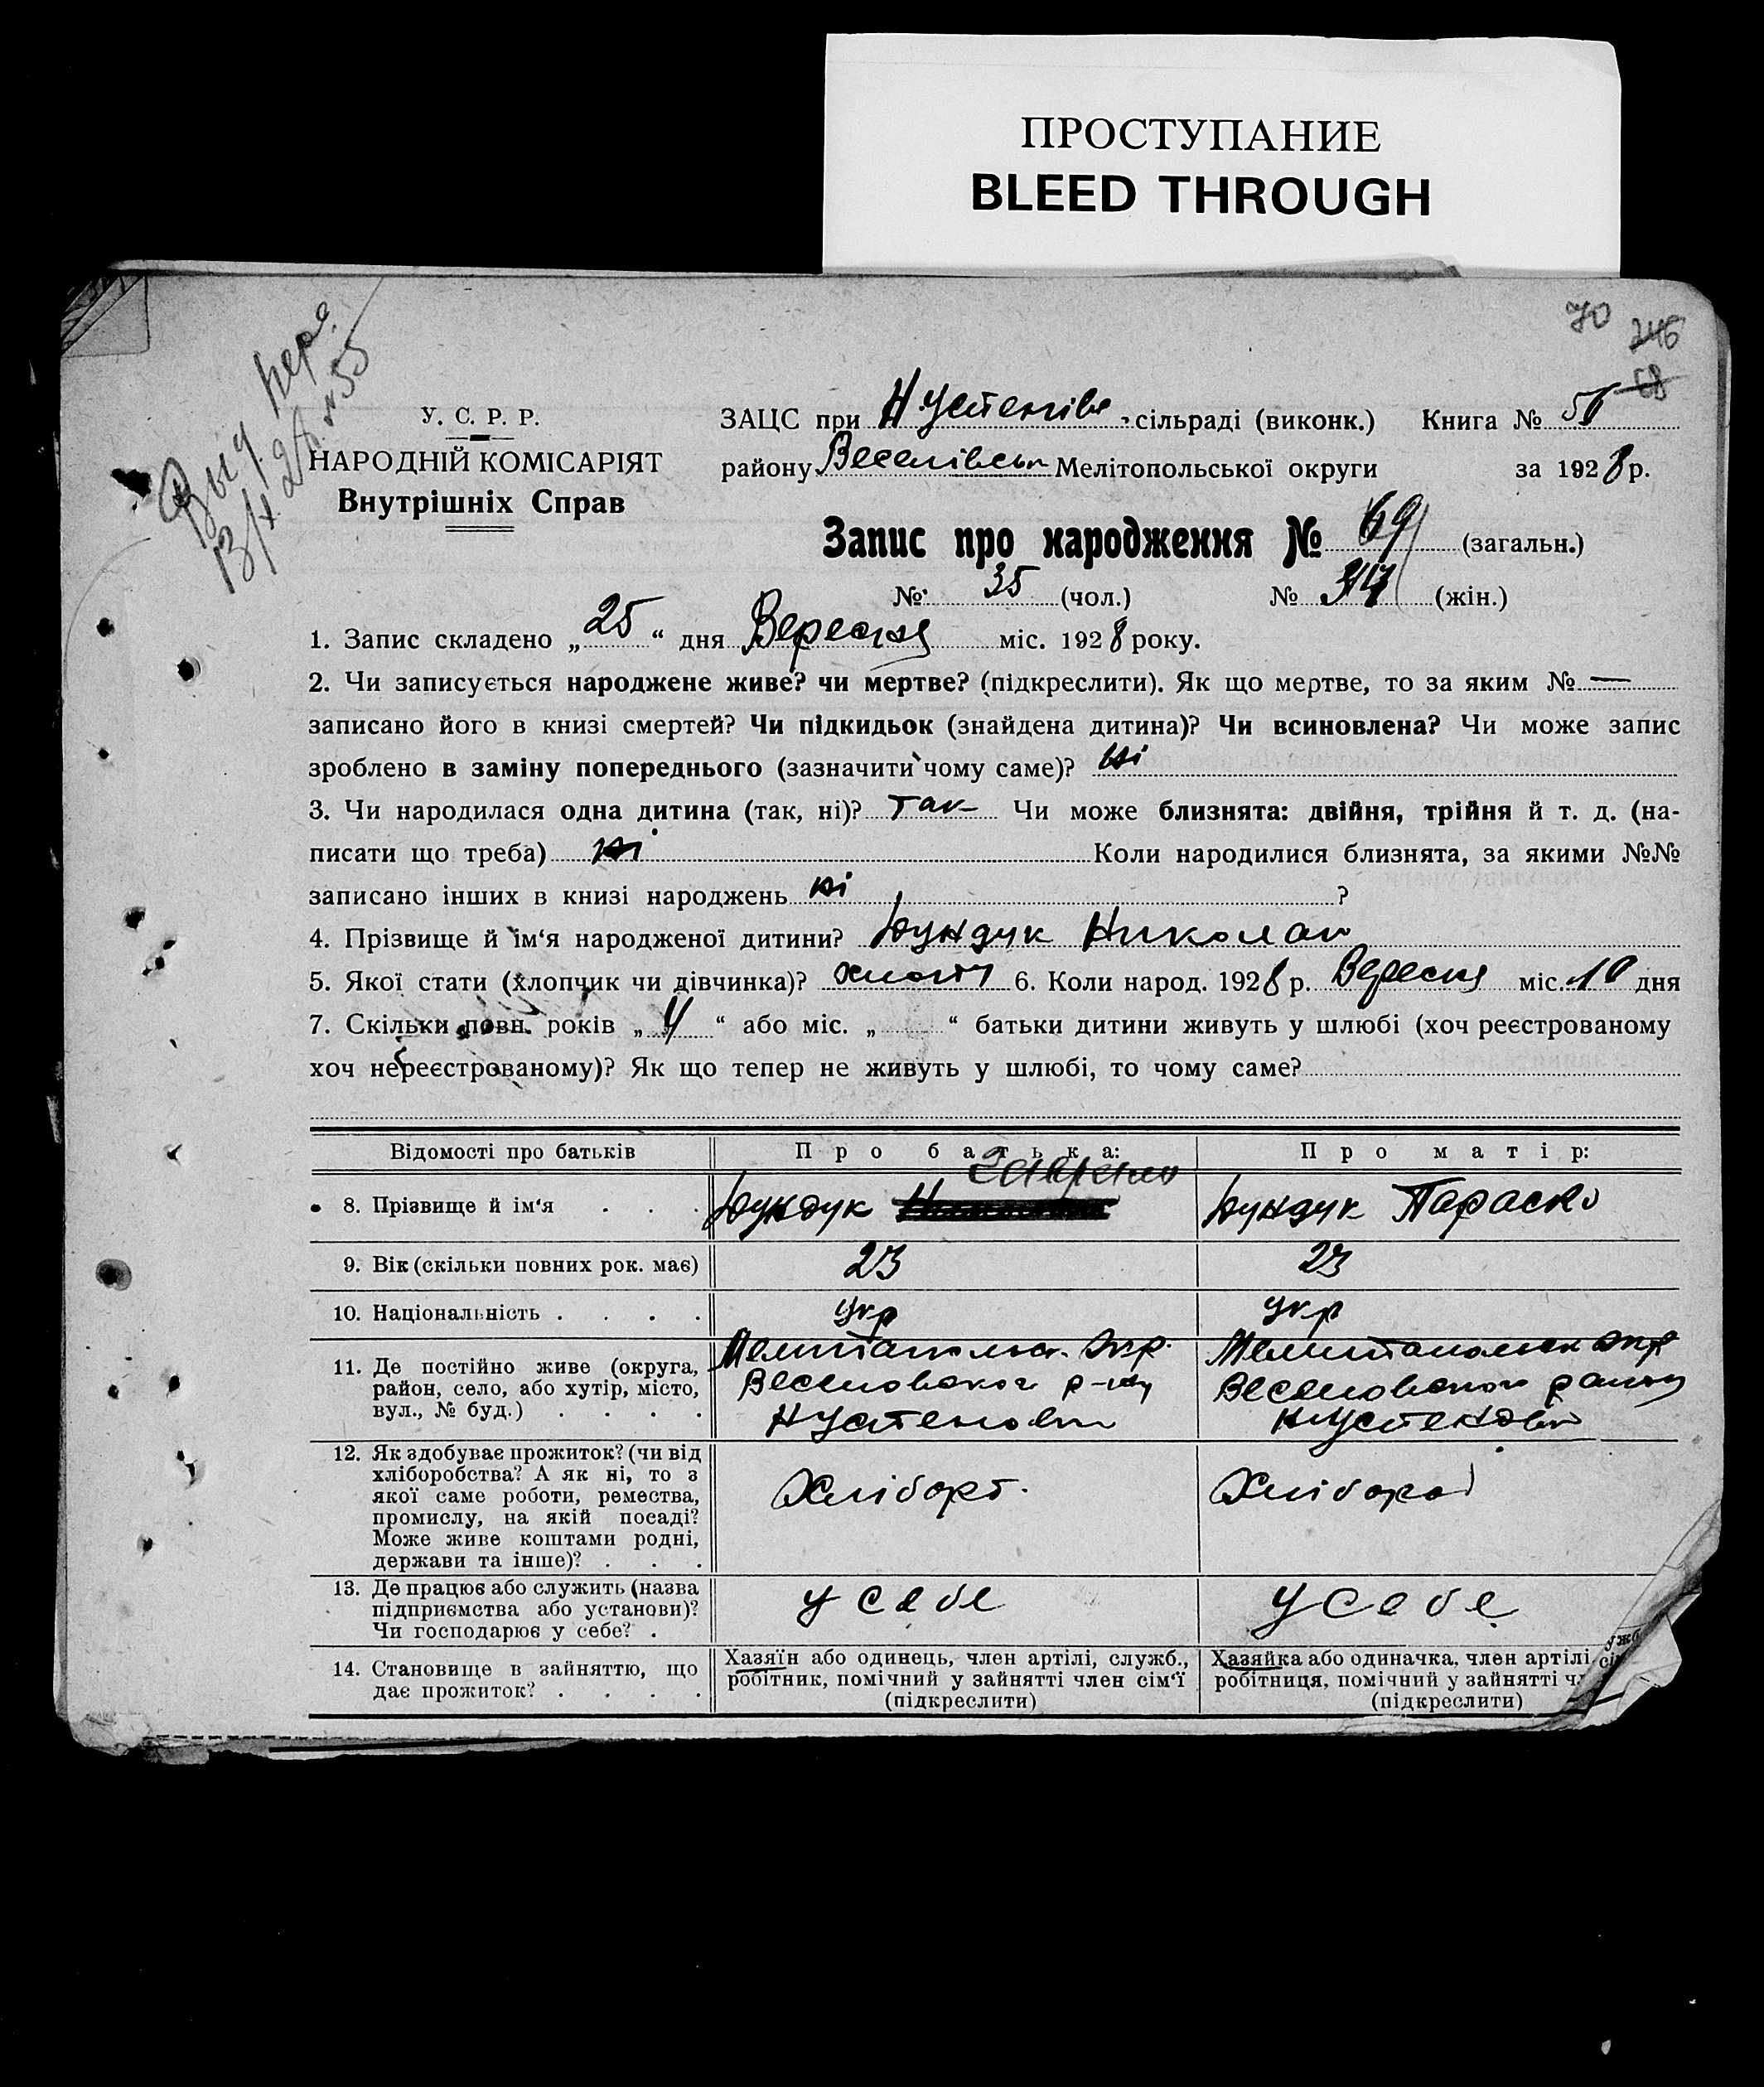 ПРОСТУПАНИЕ
BLEED THROUGH
70
246
68
У. С. Р. Р.
НАРОДНІЙ КОМІСАРІЯТ
Внутрішніх Справ
ЗАЦС при сільраді (виконк.) Книга №
району Веселівськ Мелітопольської округи за 1928 р.
Запис про народження № 69 (загальн.)
№ 35 (чол.) № 34 (жін.)
1. Запис складено „ 25 “ дня Вересня міс. 1928 року.
2. Чи записується народжене живе? чи мертве? (підкреслити). Як що мертве, то за яким № —
записано його в книзі смертей? Чи підкидьок (знайдена дитина)? Чи всиновлена? Чи може запис
зроблено в заміну попереднього (зазначити чому саме)? ні
3. Чи народилася одна дитина (так, ні)? так Чи може близнята: двійня, трійня й т. д. (на-
писати що треба) ні Коли народилися близнята, за якими №№
записано інших в книзі народжень ні ?
4. Прізвище й ім‘я народженої дитини? Бундук Николай
5. Якої стати (хлопчик чи дівчинка)? 6. Коли народ. 1928 р. Вересня міс. 10 дня
7. Скільки повн. років „ 4 “ або міс. „ “ батьки дитини живуть у шлюбі (хоч реєстрованому
хоч нереєстрованому)? Як що тепер не живуть у шлюбі, то чому саме?
Відомості про батьків Про батька: Про матір:
8. Прізвище й ім‘я Бундук Бундук Параска
9. Вік (скільки повних рок. має) 23 23
10. Національність укр укр
11. Де постійно живе (округа,
район, село, або хутір, місто,
вул., № буд.)
Мелитопольск. окр.
Веселовского р-ну
Мелитопольск окр
Веселовского району
12. Як здобуває прожиток? (чи від
хліборобства? А як ні, то з
якої саме роботи, ремества,
промислу, на якій посаді?
Може живе коштами родні,
держави та інше)?
13. Де працює або служить (назва
підприємства або установи)?
Чи господарює у себе?
у себе у себе
14. Становище в зайняттю, що
дає прожиток?
Хазяїн або одинець, член артілі, служб.,
робітник, помічний у зайнятті член сім‘ї
(підкреслити)
Хазяйка або одиначка, член артілі,
робітниця, помічний у зайнятті
(підкреслити)